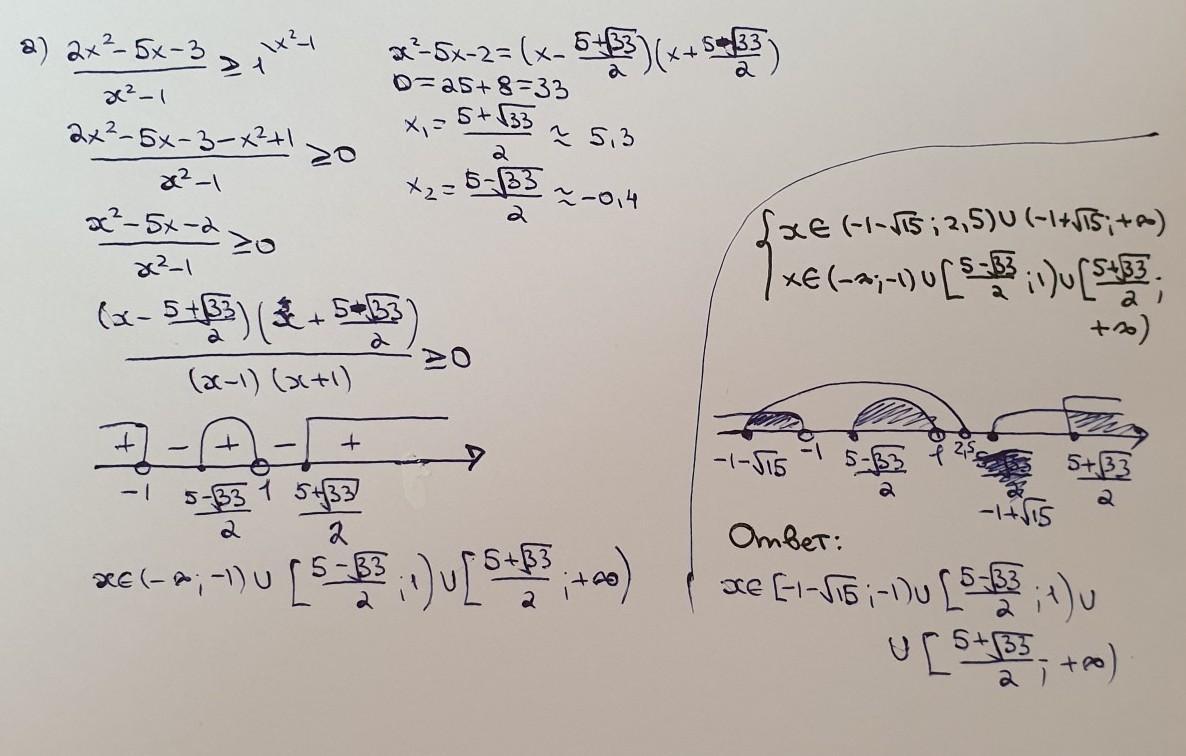 2) (2x²-5x-3)/(x²-1) ≥ 1 \x²-1
(2x²-5x-3-x²+1)/(x²-1) ≥ 0
(x²-5x-2)/(x²-1) ≥ 0
((x - (5+√33)/2)(x + (5-√33)/2))/((x-1)(x+1)) ≥ 0
+ − + − +
-1 (5-√33)/2 1 (5+√33)/2
x∈(-∞;-1)∪[(5-√33)/2;1)∪[(5+√33)/2;+∞)
x²-5x-2=(x-(5+√33)/2)(x+(5-√33)/2)
D=25+8=33
x₁=(5+√33)/2 ≈ 5,3
x₂=(5-√33)/2 ≈ -0,4
{x∈(-1-√15;2,5)∪(-1+√15;+∞)
x∈(-∞;-1)∪[(5-√33)/2;1)∪[(5+√33)/2;
+∞)
-1-√15 -1 (5-√33)/2 1 2,5 (5+√33)/2
-1+√15
Ответ:
x∈[-1-√15;-1)∪[(5-√33)/2;1)∪
∪[(5+√33)/2;+∞)